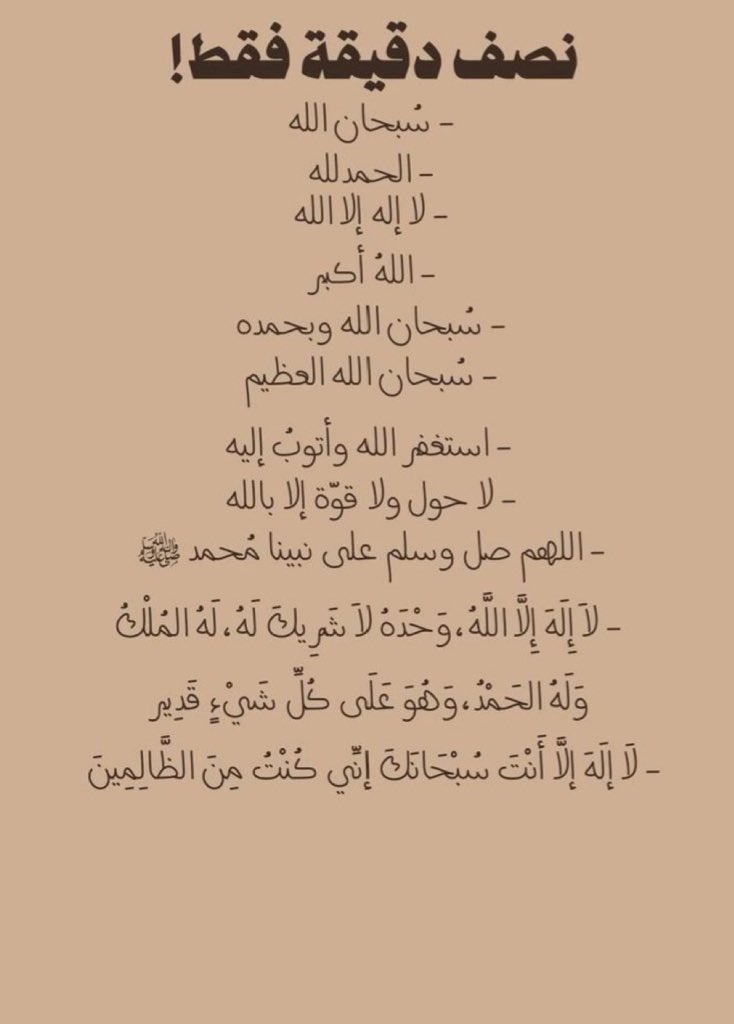 نصف دقيقة فقط!
- سُبحان الله
- الحمدلله
- لا إله إلا الله
- اللهُ أكبر
- سُبحان الله وبحمده
- سُبحان الله العظيم
- استغفر الله وأتوبُ إليه
- لا حول ولا قوّة إلا بالله
- اللهم صل وسلم على نبينا مُحمد ﷺ
- لاَ إِلَهَ إِلَّا اللَّهُ، وَحْدَهُ لاَ شَرِيكَ لَهُ، لَهُ المُلْكُ
وَلَهُ الحَمْدُ، وَهُوَ عَلَى كُلِّ شَيْءٍ قَدِير
- لَا إِلَهَ إِلَّا أَنْتَ سُبْحَانَكَ إِنِّي كُنْتُ مِنَ الظَّالِمِينَ